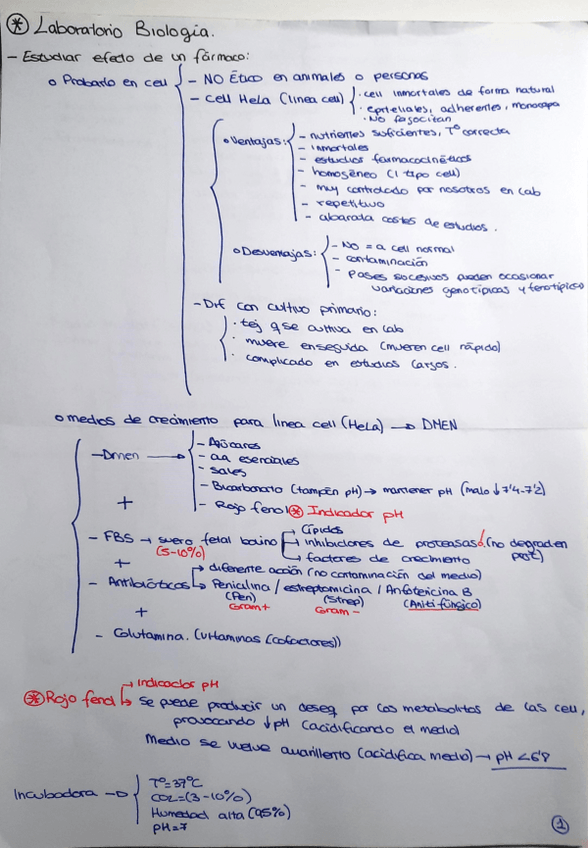 * Laboratorio Biología.
- Estudiar efecto de un fármaco:
o Probarlo en cell
- NO Ético en animales o personas
- cell HeLa (linea cell)
· cell inmortales de forma natural
· epiteliales, adherentes, monocapa
· No fagocitan
o Ventajas:
- nutrientes suficientes, Tº correcta
- inmortales
- estudios farmacocinéticos
- homogéneo (1 tipo cell)
- muy controlado por nosotros en lab
- repetitivo
- abarada costes de estudios.
o Desventajas:
- NO = a cell normal
- contaminación
- Pases sucesivos pueden ocasionar
variaciones genotípicas y fenotípicas
- Drf con cultivo primario:
· tej q se cultiva en lab
· muere enseguida (mueren cell rápido)
· complicado en estudios largos.
o medios de crecimiento para linea cell (HeLa) → DMEN
- Dmen →
- Azúcares
- aa esenciales
- sales
- Bicarbonato (tampón pH) → mantener pH (malo ↓ 7'4-7'2)
- Rojo fenol * Indicador pH
+
- FBS → suero fetal bovino
(5-10%)
→ Lípidos
→ inhibidores de proteasas (no degraden
prot)
→ factores de crecimiento
+
- Antibióticos
→ diferente acción (no contaminación del medio)
→ Penicilina / estreptomicina / Anfotericina B
(Pen) (Strep) (Anti-fúngico)
Gram+ Gram-
+
- Glutamina. (vitaminas (cofactores))
* Rojo fenol
→ Indicador pH
→ Se puede producir un deseq por los metabolitos de las cell,
provocando ↓ pH (acidificando el medio)
Medio se vuelve amarillento (acidifica medio) → pH < 6'8
Incubadora →
Tº=37ºC
CO2=(3-10%)
Humedad alta (95%)
pH=7
1